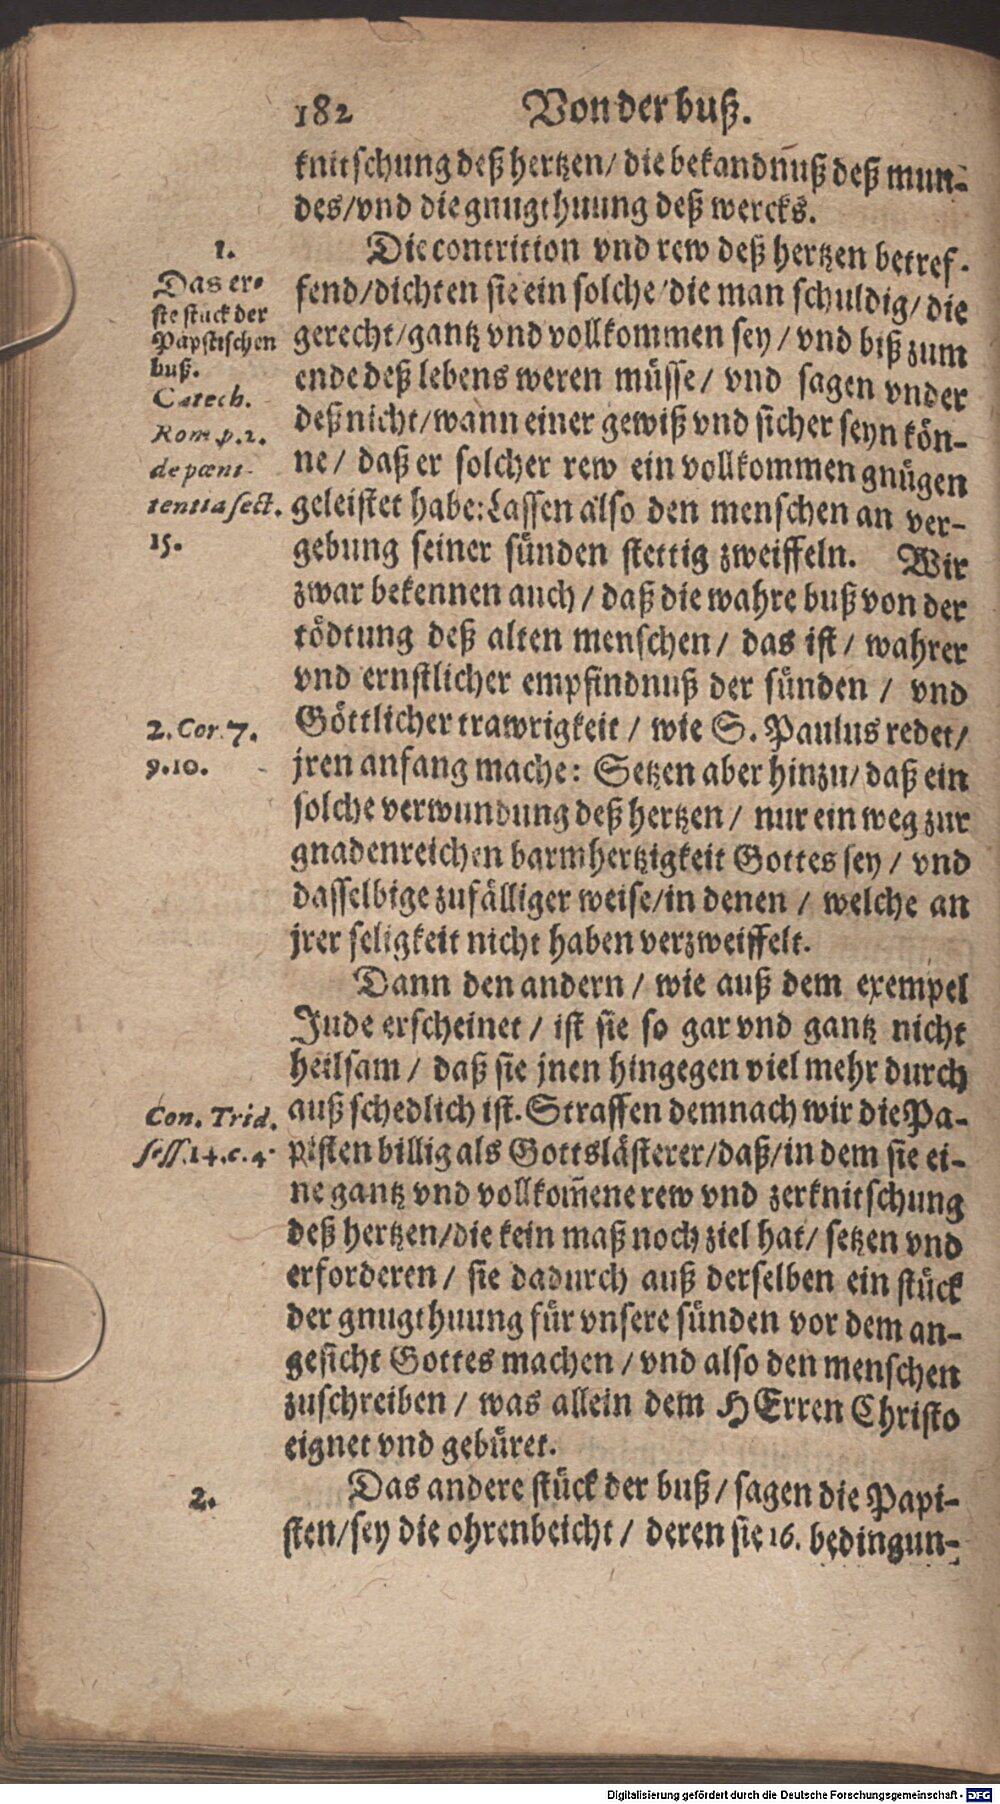 182 Von der buß.
knitschung deß hertzen/ die bekandnuß deß mun-
des/vnd die gnugthuung deß wercks.
1.
Das er-
ste stuck der
Päpstischen
buß.
Catech.
Rom. p. 2.
de pœni-
tentia sect.
15.
Die contrition vnd rew deß hertzen betref-
fend/dichten sie ein solche/die man schuldig/die
gerecht/gantz vnd vollkommen sey/ vnd biß zum
ende deß lebens weren müsse/ vnd sagen vnder
deß nicht/wann einer gewiß vnd sicher seyn kön-
ne/ daß er solcher rew ein vollkommen gnügen
geleistet habe: Lassen also den menschen an ver-
gebung seiner sünden stettig zweiffeln. Wir
zwar bekennen auch/ daß die wahre buß von der
tödtung deß alten menschen/ das ist/ wahrer
vnd ernstlicher empfindnuß der sünden/ vnd
2. Cor. 7.
9.10.
Göttlicher trawrigkeit/ wie S. Paulus redet/
jren anfang mache: Setzen aber hinzu/ daß ein
solche verwundung deß hertzen/ nur ein weg zur
gnadenreichen barmhertzigkeit Gottes sey/ vnd
dasselbige zufälliger weise/in denen/ welche an
jrer seligkeit nicht haben verzweiffelt.
Dann den andern/ wie auß dem exempel
Jude erscheinet/ ist sie so gar vnd gantz nicht
heilsam/ daß sie jnen hingegen viel mehr durch
Con. Trid.
sess. 14. c. 4.
auß schedlich ist. Straffen demnach wir die Pa-
pisten billig als Gottslästerer/daß/in dem sie ei-
ne gantz vnd vollkom̃ene rew vnd zerknitschung
deß hertzen/die kein maß noch ziel hat/ setzen vnd
erforderen/ sie dadurch auß derselben ein stück
der gnugthuung für vnsere sünden vor dem an-
gesicht Gottes machen/ vnd also den menschen
zuschreiben/ was allein dem HErren Christo
eignet vnd gebüret.
2.
Das andere stück der buß/ sagen die Papi-
sten/sey die ohrenbeicht/ deren sie 16. bedingun-
Digitalisierung gefördert durch die Deutsche Forschungsgemeinschaft - DFG